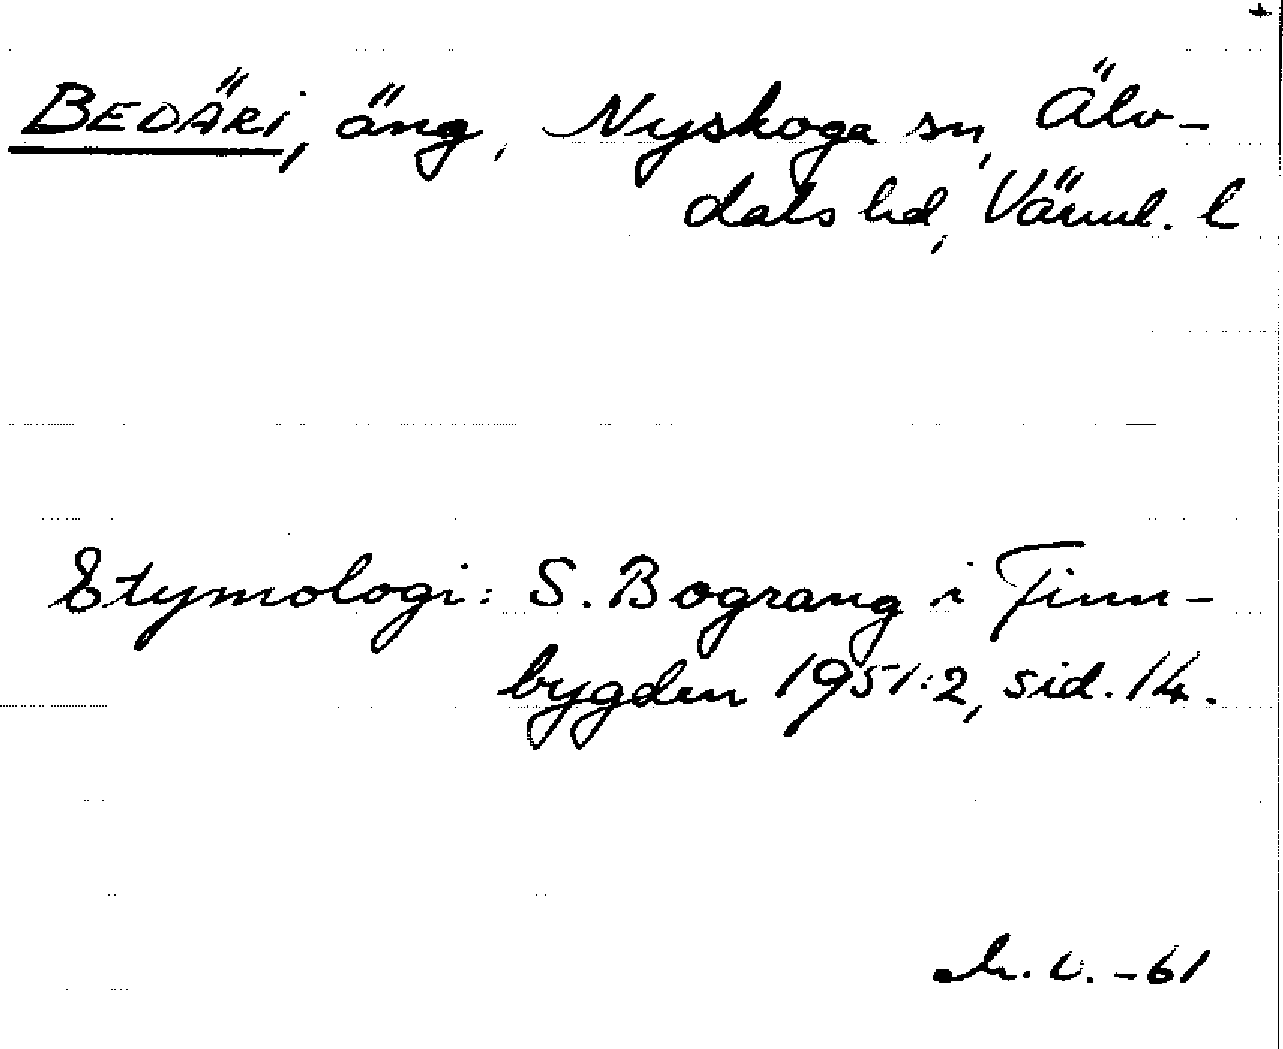 +
BEDÄRI, äng, Nyskoga sn, Älv-
dals hd, Värml. l
Etymologi: S. Bograng i Finn-
bygden 1951:2, sid. 14.
-61